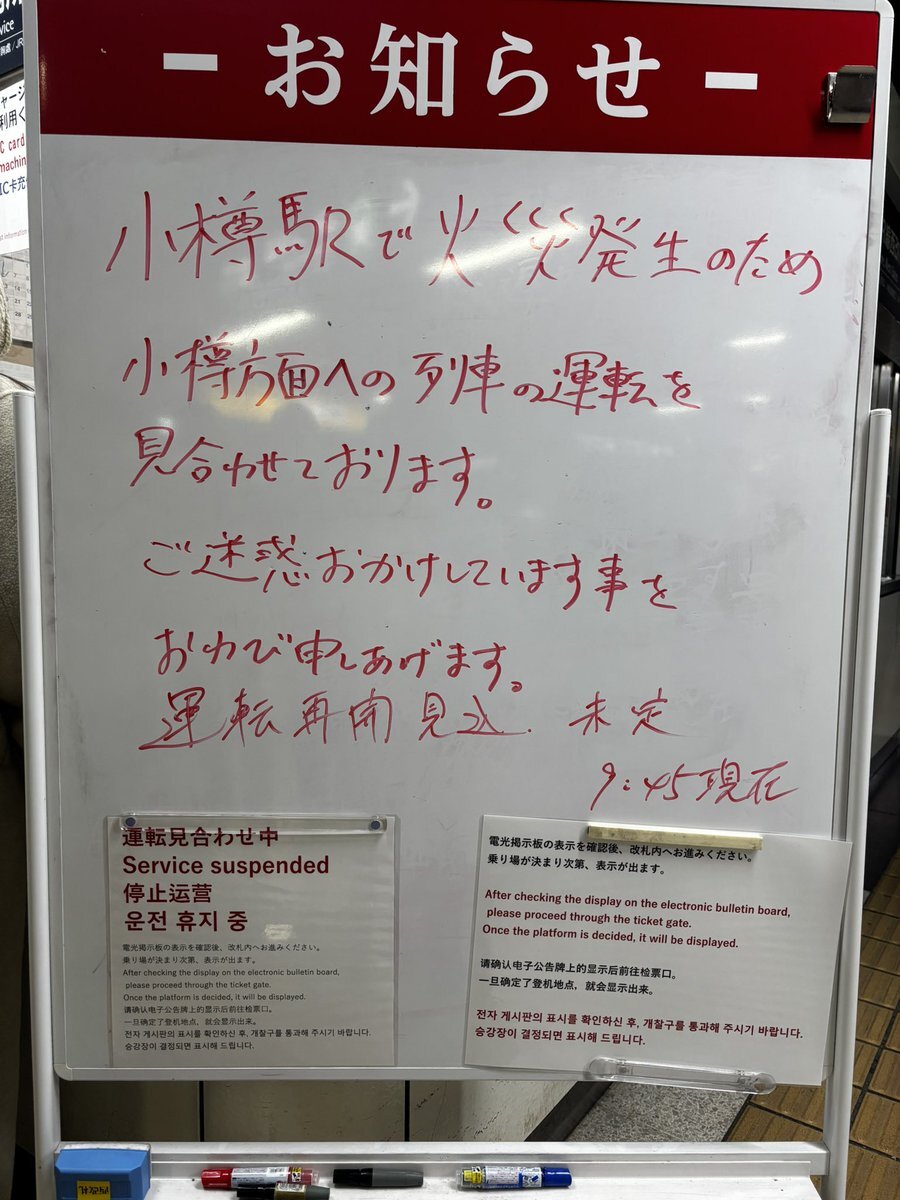 - お知らせ -
小樽駅で火災発生のため
小樽方面への列車の運転を
見合わせております。
ご迷惑おかけしています事を
おわび申しあげます。
運転再開見込 未定
9:45現在
運転見合わせ中
Service suspended
停止运营
운전 휴지 중
電光掲示板の表示を確認後、改札内へお進みください。
乗り場が決まり次第、表示が出ます。
After checking the display on the electronic bulletin board,
please proceed through the ticket gate.
Once the platform is decided, it will be displayed.
请确认电子公告牌上的显示后前往检票口。
一旦确定了登机地点，就会显示出来。
전자 게시판의 표시를 확인하신 후, 개찰구를 통과해 주시기 바랍니다.
승강장이 결정되면 표시해 드립니다.
電光掲示板の表示を確認後、改札内へお進みください。
乗り場が決まり次第、表示が出ます。
After checking the display on the electronic bulletin board,
please proceed through the ticket gate.
Once the platform is decided, it will be displayed.
请确认电子公告牌上的显示后前往检票口。
一旦确定了登机地点，就会显示出来。
전자 게시판의 표시를 확인하신 후, 개찰구를 통과해 주시기 바랍니다.
승강장이 결정되면 표시해 드립니다.
西改札